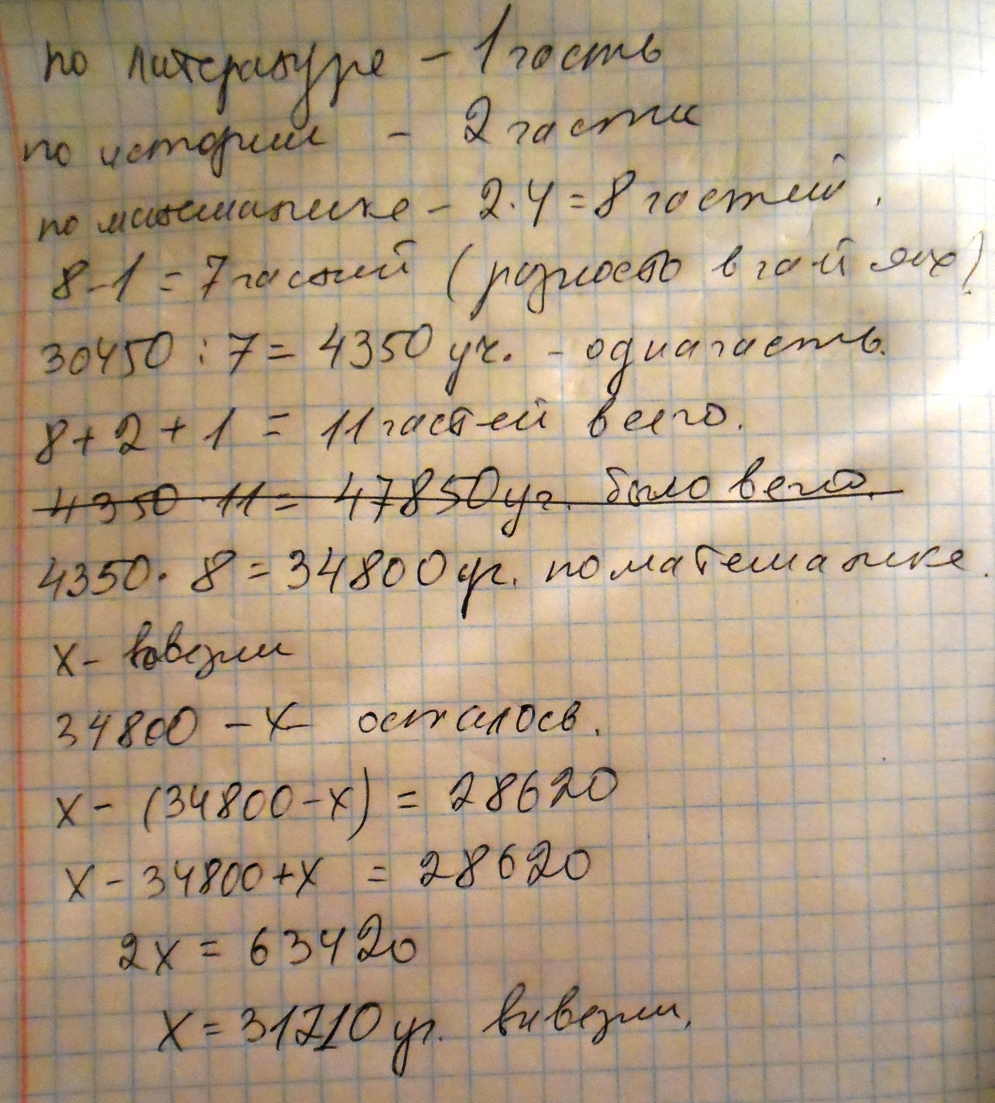 по литературе - 1 часть
по истории - 2 части
по математике - 2·4 = 8 частей.
8-1 = 7 частей (разность в частях)
30450 : 7 = 4350 уч. - одна часть.
8+2+1 = 11 частей всего.
4350·11 = 47850 уч. было всего.
4350·8 = 34800 уч. по математике.
х - вывезли
34800 - х осталось.
х - (34800-х) = 28620
х - 34800+х = 28620
2х = 63420
х = 31710 уч. вывезли.